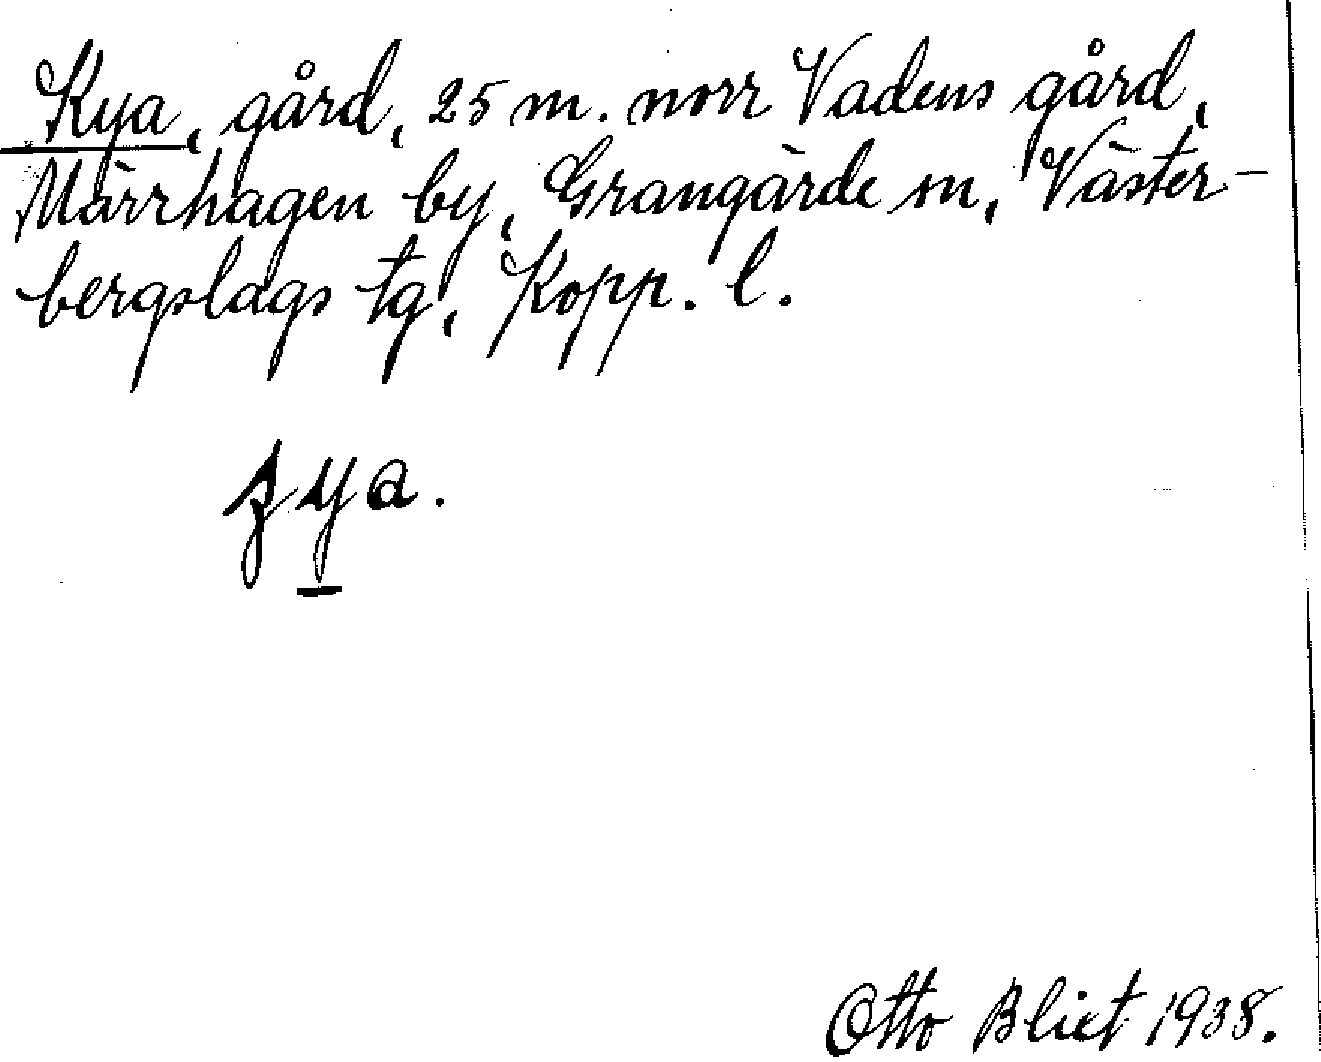 Kya, gård, 25 m. norr Vadens gård,
Märrhagen by, Grangärde sn, Väster-
bergslags tg, Kopp. l.
ʂya.
Otto Blixt 1938.